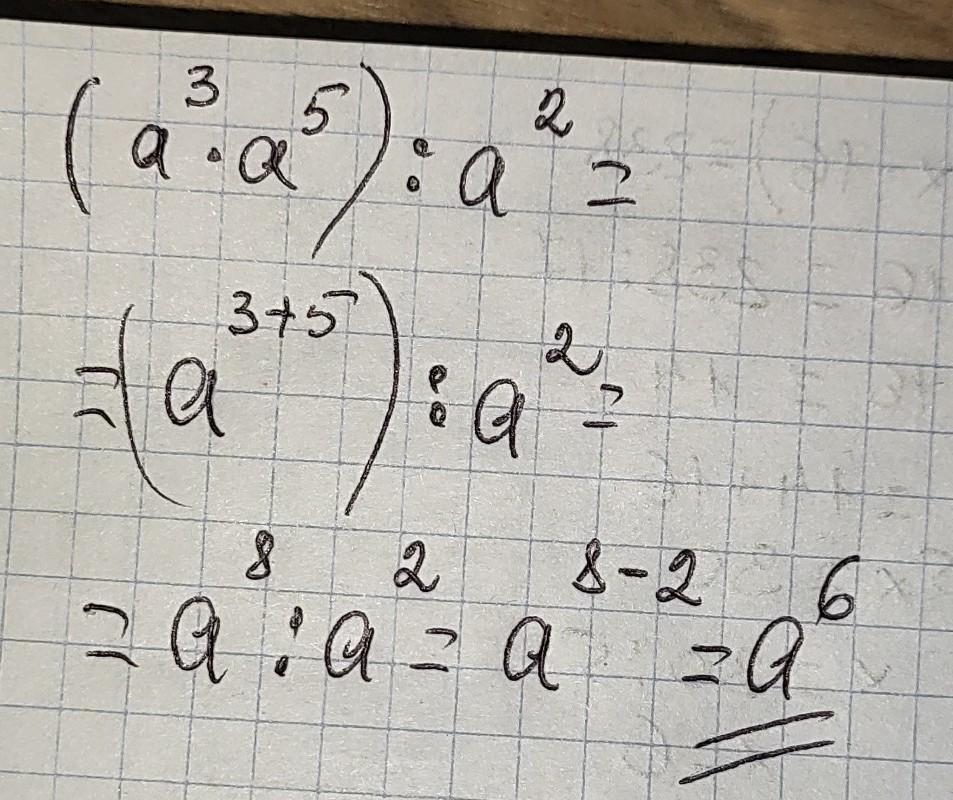 (a³·a⁵):a²=
=(a³⁺⁵):a²=
=a⁸:a²=a⁸⁻²=a⁶